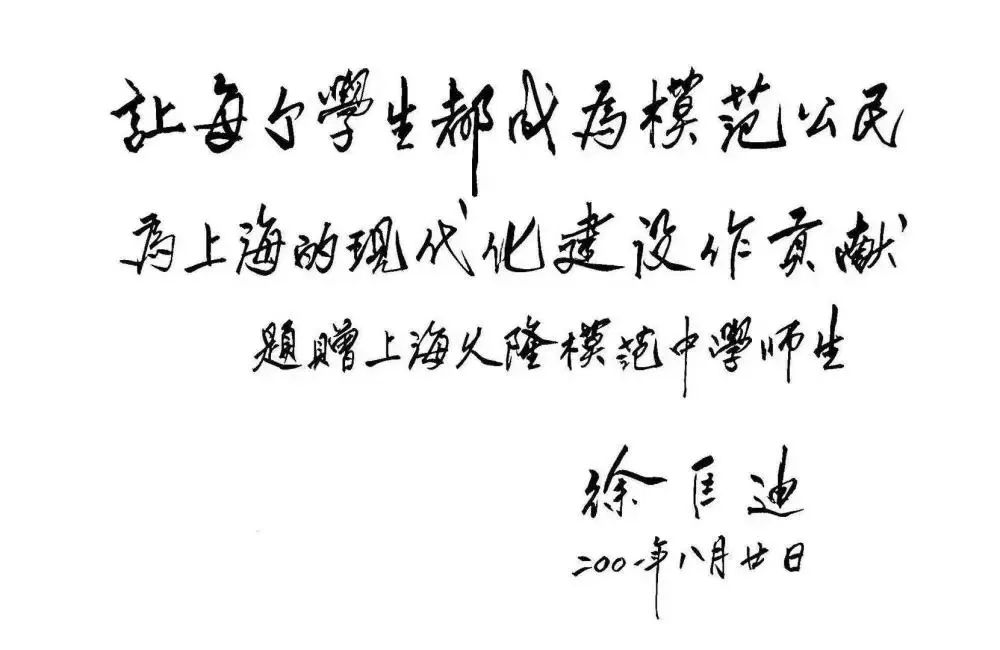 让每个學生都成為模范公民
為上海的現代化建设作貢献
題贈上海久隆模范中學师生
徐匡迪
二００一年八月廿日